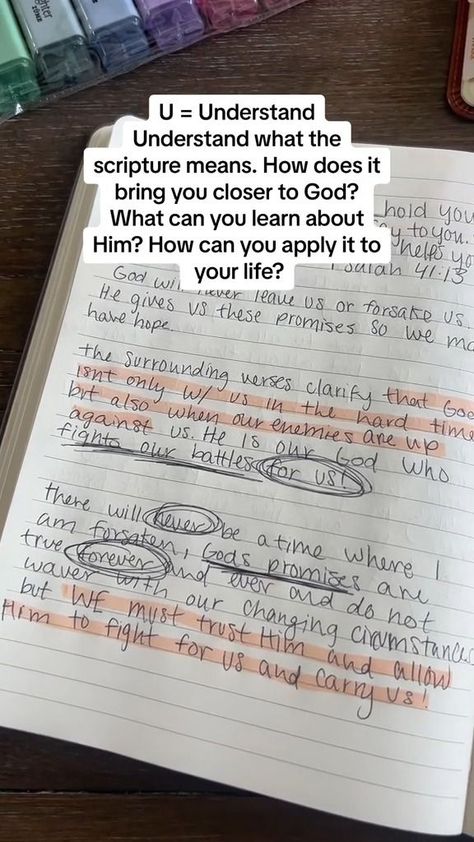 ghlighter
ZONE
U = Understand
Understand what the
scripture means. How does it
bring you closer to God?
What can you learn about
Him? How can you apply it to
your life?
hold you
to you.
helps yo
Isaiah 41:13
God will never leave us or forsake us
He gives us these promises so we ma
have hope.
the surrounding verses clarify that God
isnt only w/ us in the hard time
but also when our enemies are up
against us. He is our God who
fights our battles for us!
there will never be a time where I
am forsaken, Gods promises are
true forever and ever and do not
waver with our changing circumstances
but WE must trust Him and allow
Him to fight for us and carry us!